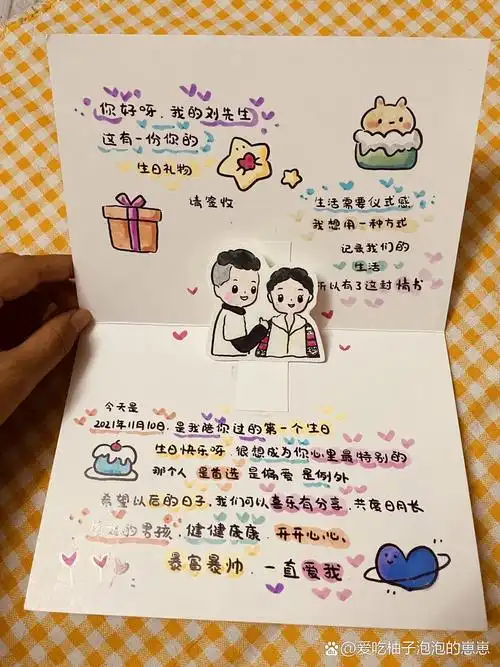 你好呀，我的刘先生
这有一份你的
生日礼物
请签收
生活需要仪式感
我想用一种方式
记录我们的
生活
所以有了这封情书
今天是
2021年11月10日，是我陪你过的第一个生日
生日快乐呀，很想成为你心里最特别的
那个人 是首选 是偏爱 是例外
希望以后的日子，我们可以喜乐有分享，共度日月长
的男孩，健健康康，开开心心，
暴富暴帅，一直爱我
爱吃柚子泡泡的崽崽